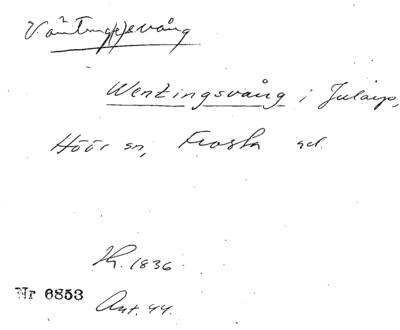 Väntingsvång
Wentzingsvång i Jularp,
Höör sn, Frosta hd.
Kr. 1836.
Nr 6853
Ant. 44.